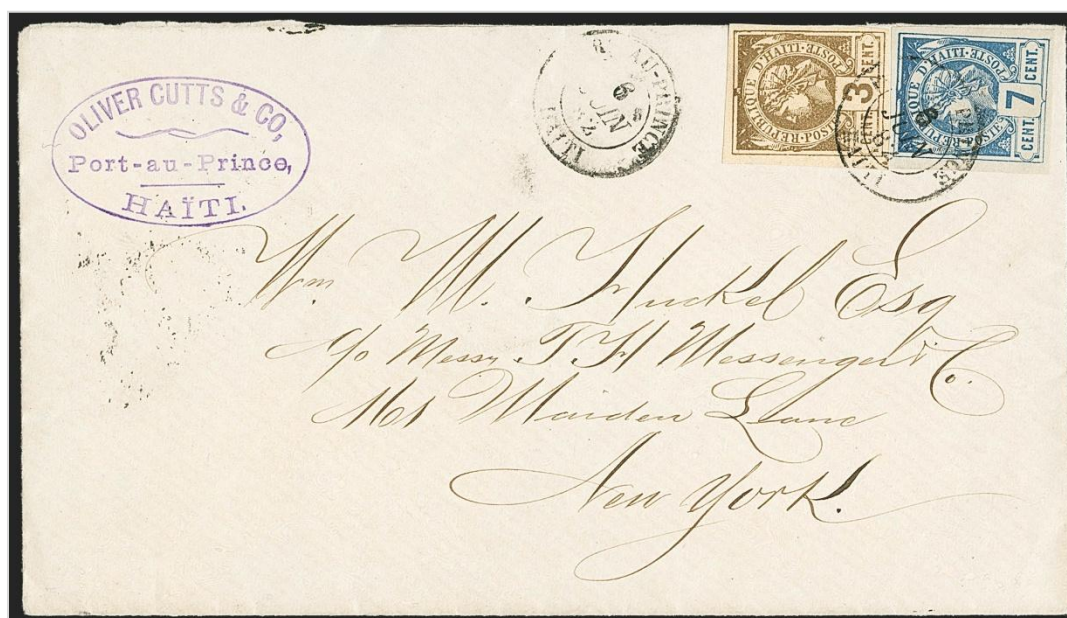 OLIVER CUTTS & CO,
Port-au-Prince,
HAÏTI.
AU-PRINCE
6
JUIN
82
HAITI
REPUBLIQUE D'HAITI·POSTE·
3
CENT.
REPUBLIQUE D'HAITI·POSTE·
7
CENT.
CENT.
6
JUIN
Wm M. Huckel Esq
c/o Messrs. T. H Messenger & Co.
161 Maiden Lane
New York.